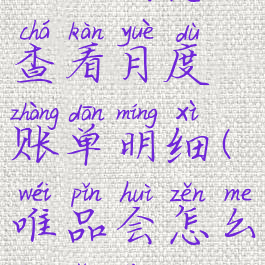 chá kàn yuè dù
查看月度
zhàng dān míng xì
账单明细(
wéi pǐn huì zěn me
唯品会怎么